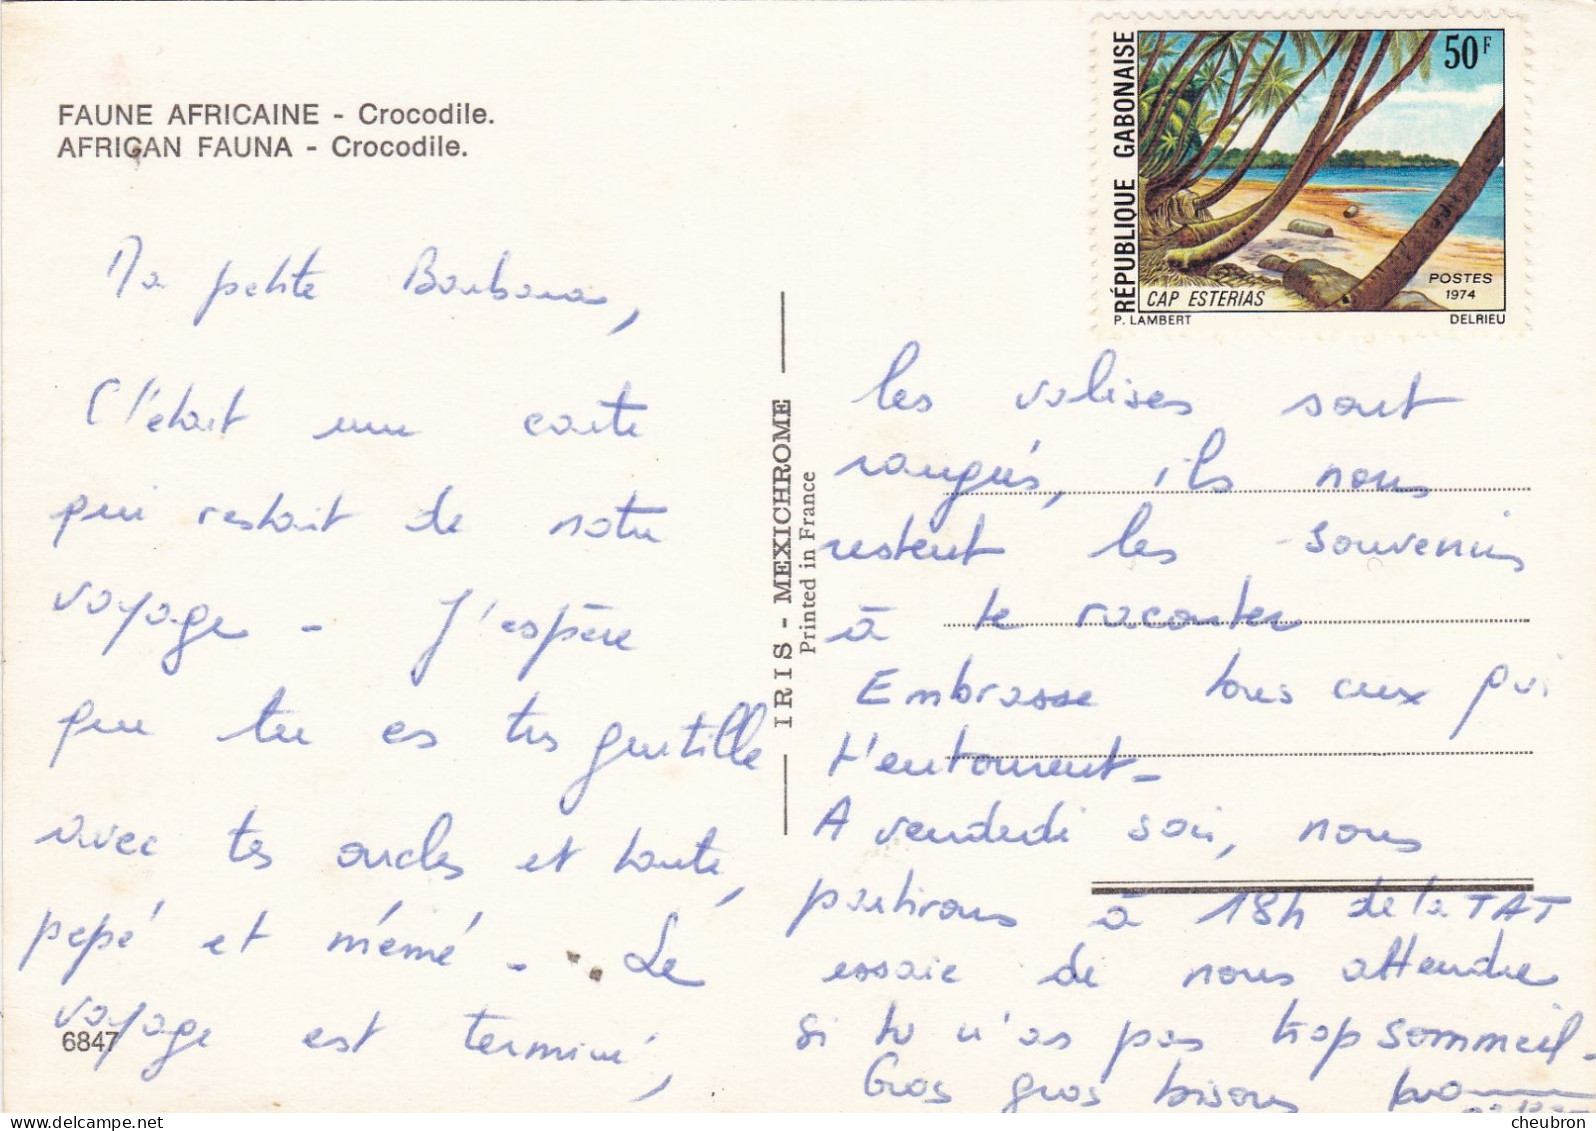 FAUNE AFRICAINE - Crocodile.
AFRICAN FAUNA - Crocodile.
Ma petite Barbara,
C'était une carte
qui restait de notre
voyage - J'espère
que tu es très gentille
avec tes oncles et tante,
pépé et mémé - Le
voyage est terminé,
6847
IRIS - MEXICHROME
Printed in France
RÉPUBLIQUE GABONAISE
50F
CAP ESTERIAS
POSTES
1974
P. LAMBERT
DELRIEU
les valises sont
rangés, ils nous
restent les souvenirs
à te raconter
Embrasse tous ceux qui
t'entourent -
A vendredi soir, nous
partirons à 18h de la TAT
essaie de nous attendre
si tu n'as pas trop sommeil -
Gros gros bisous
cheubron.com